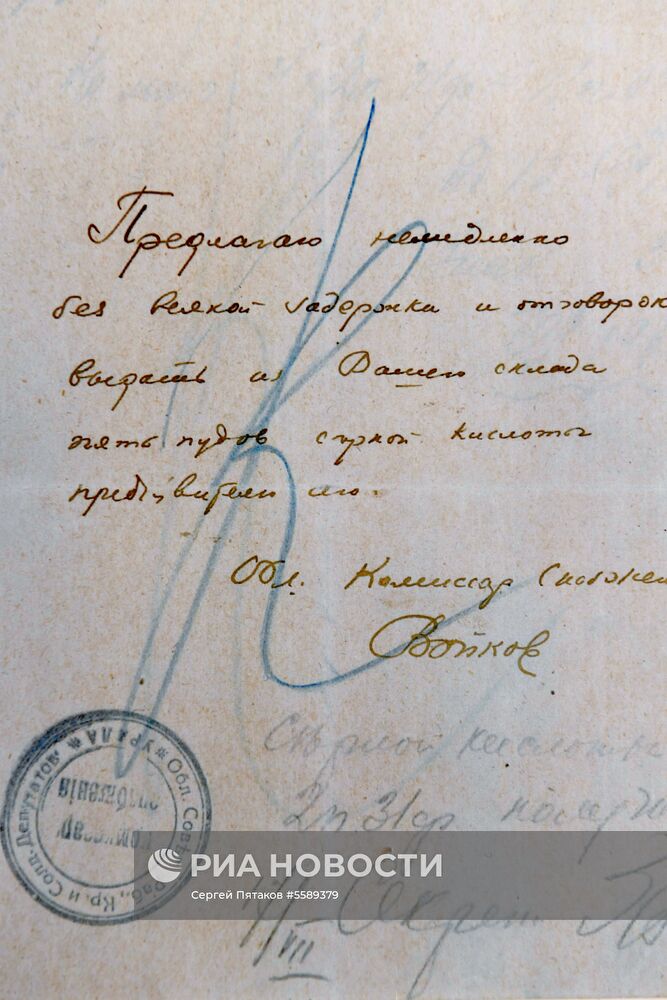 Предлагаю немедленно
без всякой задержки и отговорок
выдать из Вашего склада
пять пудов серной кислоты
предъявителю сего.
Обл. Комиссар Снабжен
Войков
Серной кислоты
2п. 31ф. получ
Секрет.
VII
Обл. Сов. Раб., Кр. и Солд. Депутатовъ * УРАЛА *
Комиссар
снабженія
РИА НОВОСТИ
Сергей Пятаков #5589379